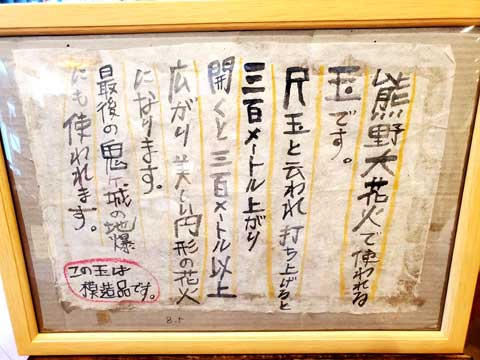 熊野大花火で使われる
玉です。
尺玉と云われ打ち上げると
三百メートル上がり
開くと三百メートル以上
広がり美しい円形の花火
になります。
最後の鬼ヶ城の地爆
にも使われます。
この玉は
模造品です。
8.5